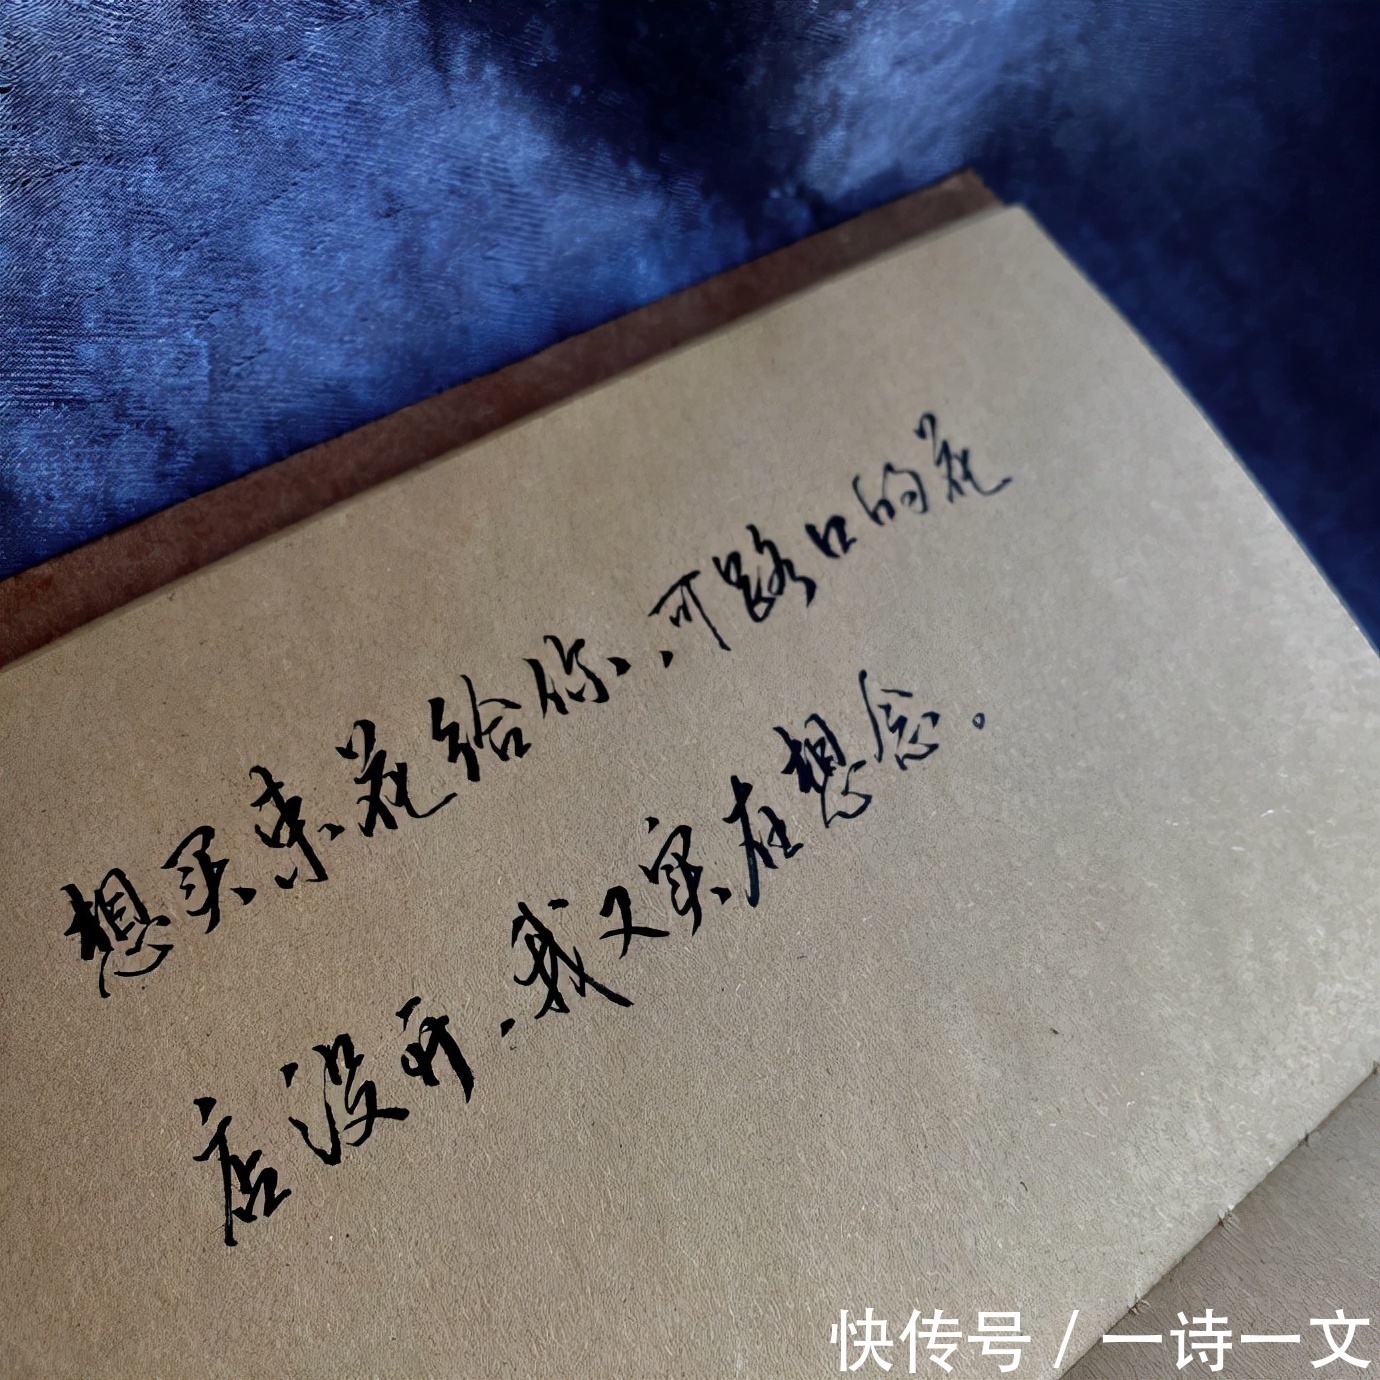 想买束花给你，可路口的花
店没开，我又实在想念。
快传号/一诗一文